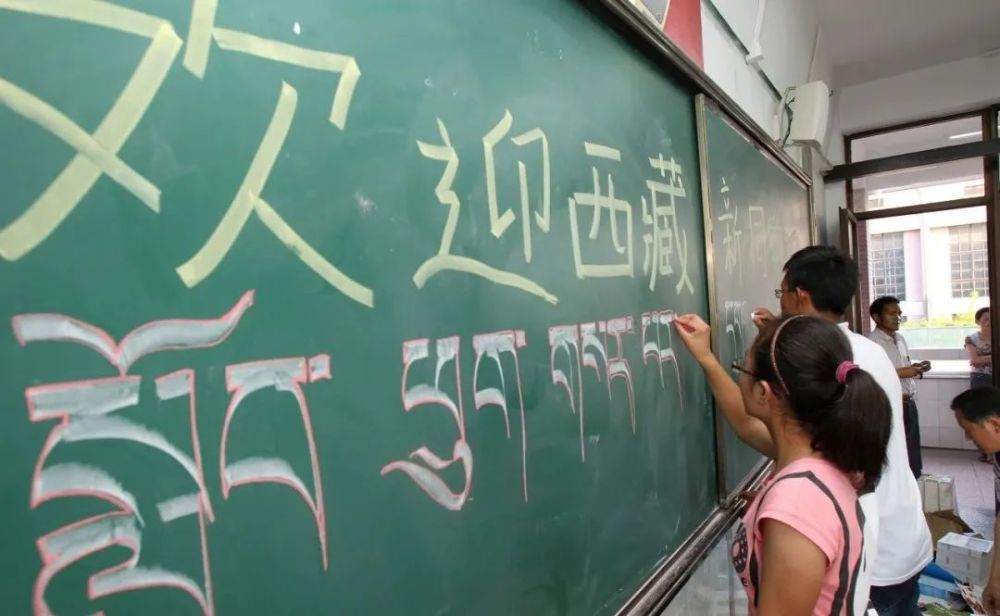 欢迎西藏新同
སློབ་ཕྲུག་གསར